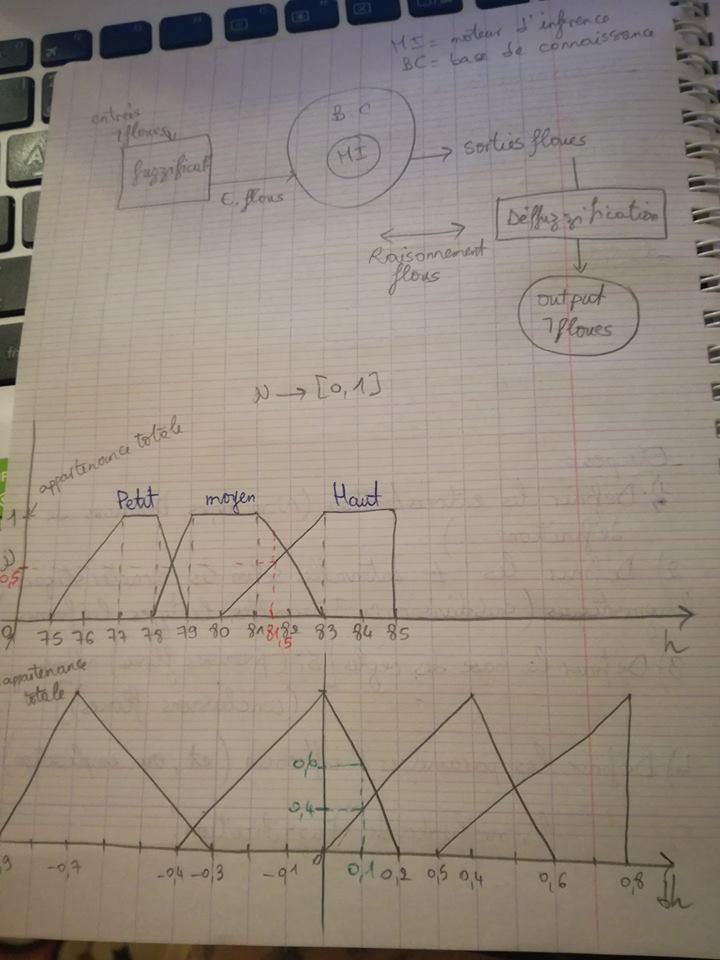 MI = moteur d'inférence
BC = base de connaissance
entrées
7floues
fuzzificat
E. flous
B.C
MI
sorties floues
Déffuzzification
Raisonnement
flous
output
7floues
N → [0,1]
appartenance totale
Petit
moyen
Haut
1
0,5
75 76 77 78 79 80 81 81,5 82 83 84 85
h
appartenance
totale
0,6
0,4
-0,7 -0,4 -0,3 -0,1 0 0,1 0,2 0,5 0,4 0,6 0,8